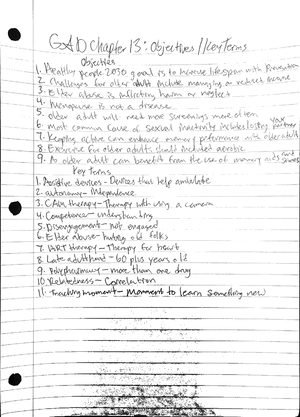 GAD Chapter 13: Objectives // Key Terms
Objectives
1. Healthy people 2030 goal is to increase lifespan with prevention
2. Challenges for older adult include managing or reduced income
3. Elder abuse is inflicting harm or neglect
4. Menopause is not a disease
5. older adult will need more screenings more often
6. most common cause of sexual inactivity includes losing your partner
7. Keeping active can enhance memory performance with older adult
8. Exercise for older adults should include aerobic
9. An older adult can benefit from the use of memory aids and
Key Terms
1. Assistive devices - Devices that help ambulate
2. autonomy - Independence
3. CAM therapy - Therapy with using a camera
4. Competence - understanding
5. Disengagement - not engaged
6. Elder abuse - hurting old folks
7. HRT therapy - Therapy for heart
8. Late adulthood - 60 plus years old
9. Polypharmacy - more than one drug
10. Relatedness - Correlation
11. Teaching moment - Moment to learn something new